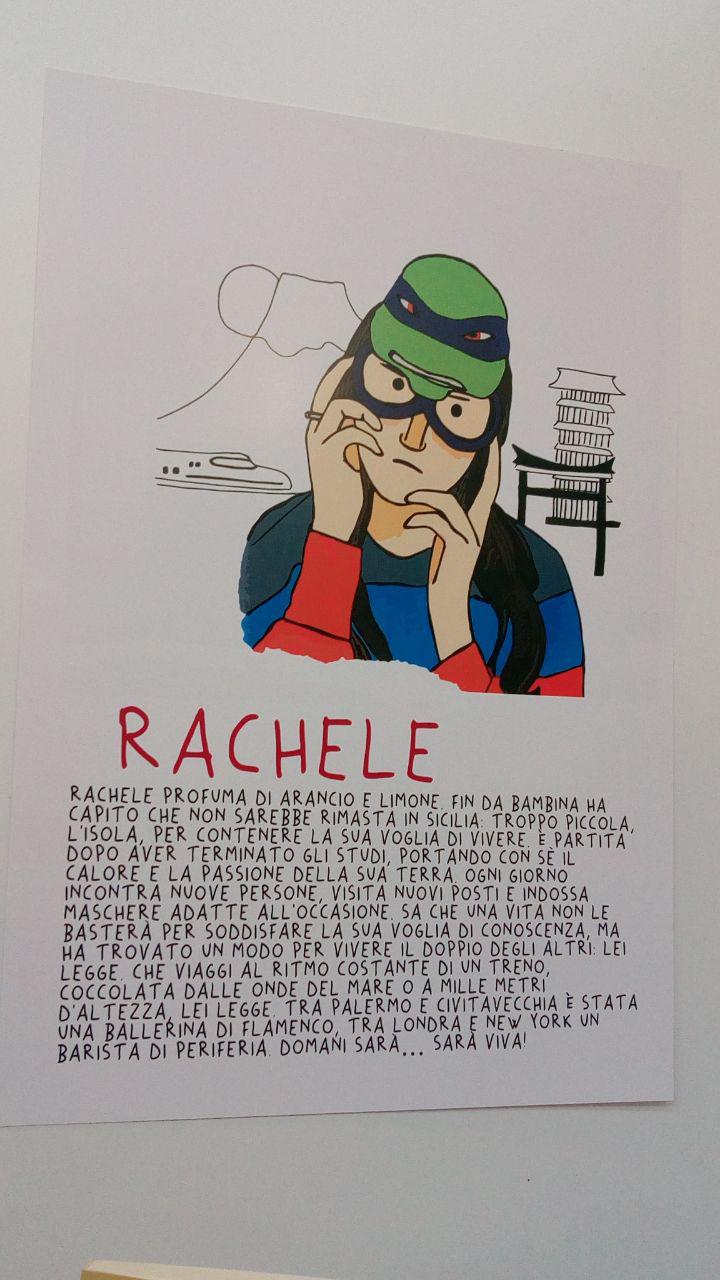 RACHELE
RACHELE PROFUMA DI ARANCIO E LIMONE. FIN DA BAMBINA HA
CAPITO CHE NON SAREBBE RIMASTA IN SICILIA: TROPPO PICCOLA,
L'ISOLA, PER CONTENERE LA SUA VOGLIA DI VIVERE. È PARTITA
DOPO AVER TERMINATO GLI STUDI, PORTANDO CON SÉ IL
CALORE E LA PASSIONE DELLA SUA TERRA. OGNI GIORNO
INCONTRA NUOVE PERSONE, VISITA NUOVI POSTI E INDOSSA
MASCHERE ADATTE ALL'OCCASIONE. SA CHE UNA VITA NON LE
BASTERÀ PER SODDISFARE LA SUA VOGLIA DI CONOSCENZA, MA
HA TROVATO UN MODO PER VIVERE IL DOPPIO DEGLI ALTRI: LEI
LEGGE. CHE VIAGGI AL RITMO COSTANTE DI UN TRENO,
COCCOLATA DALLE ONDE DEL MARE O A MILLE METRI
D'ALTEZZA, LEI LEGGE. TRA PALERMO E CIVITAVECCHIA È STATA
UNA BALLERINA DI FLAMENCO, TRA LONDRA E NEW YORK UN
BARISTA DI PERIFERIA. DOMANI SARÀ... SARÀ VIVA!